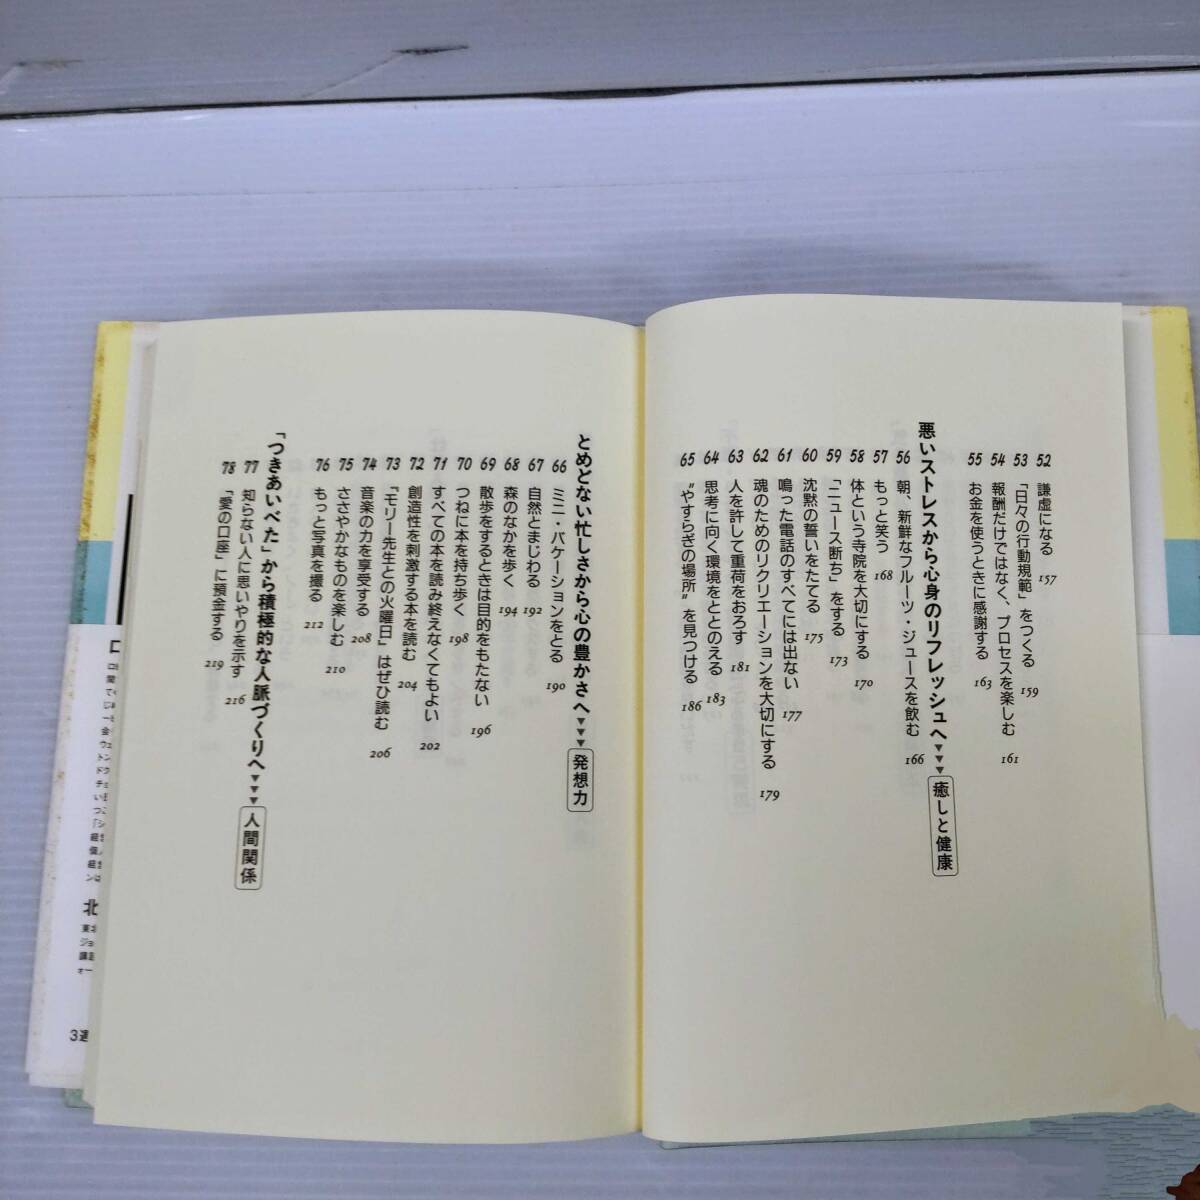 52 謙虚になる 157
53 「日々の行動規範」をつくる 159
54 報酬だけではなく、プロセスを楽しむ 161
55 お金を使うときに感謝する 163
悪いストレスから心身のリフレッシュへ▼▼▼癒しと健康
56 朝、新鮮なフルーツ・ジュースを飲む 166
57 もっと笑う 168
58 体という寺院を大切にする 170
59 「ニュース断ち」をする 173
60 沈黙の誓いをたてる 175
61 鳴った電話のすべてには出ない 177
62 魂のためのリクリエーションを大切にする 179
63 人を許して重荷をおろす 181
64 思考に向く環境をととのえる 183
65 “やすらぎの場所”を見つける 186
とめどない忙しさから心の豊かさへ▼▼▼発想力
66 ミニ・バケーションをとる 190
67 自然とまじわる 192
68 森のなかを歩く 194
69 散歩をするときは目的をもたない 196
70 つねに本を持ち歩く 198
71 すべての本を読み終えなくてもよい 202
72 創造性を刺激する本を読む 204
73 『モリー先生との火曜日』はぜひ読む 206
74 音楽の力を享受する 208
75 ささやかなものを楽しむ 210
76 もっと写真を撮る 212
「つきあいべた」から積極的な人脈づくりへ▼▼▼人間関係
77 知らない人に思いやりを示す 216
78 「愛の口座」に預金する 219
北
東北
ジョ
講談
ォー
3週